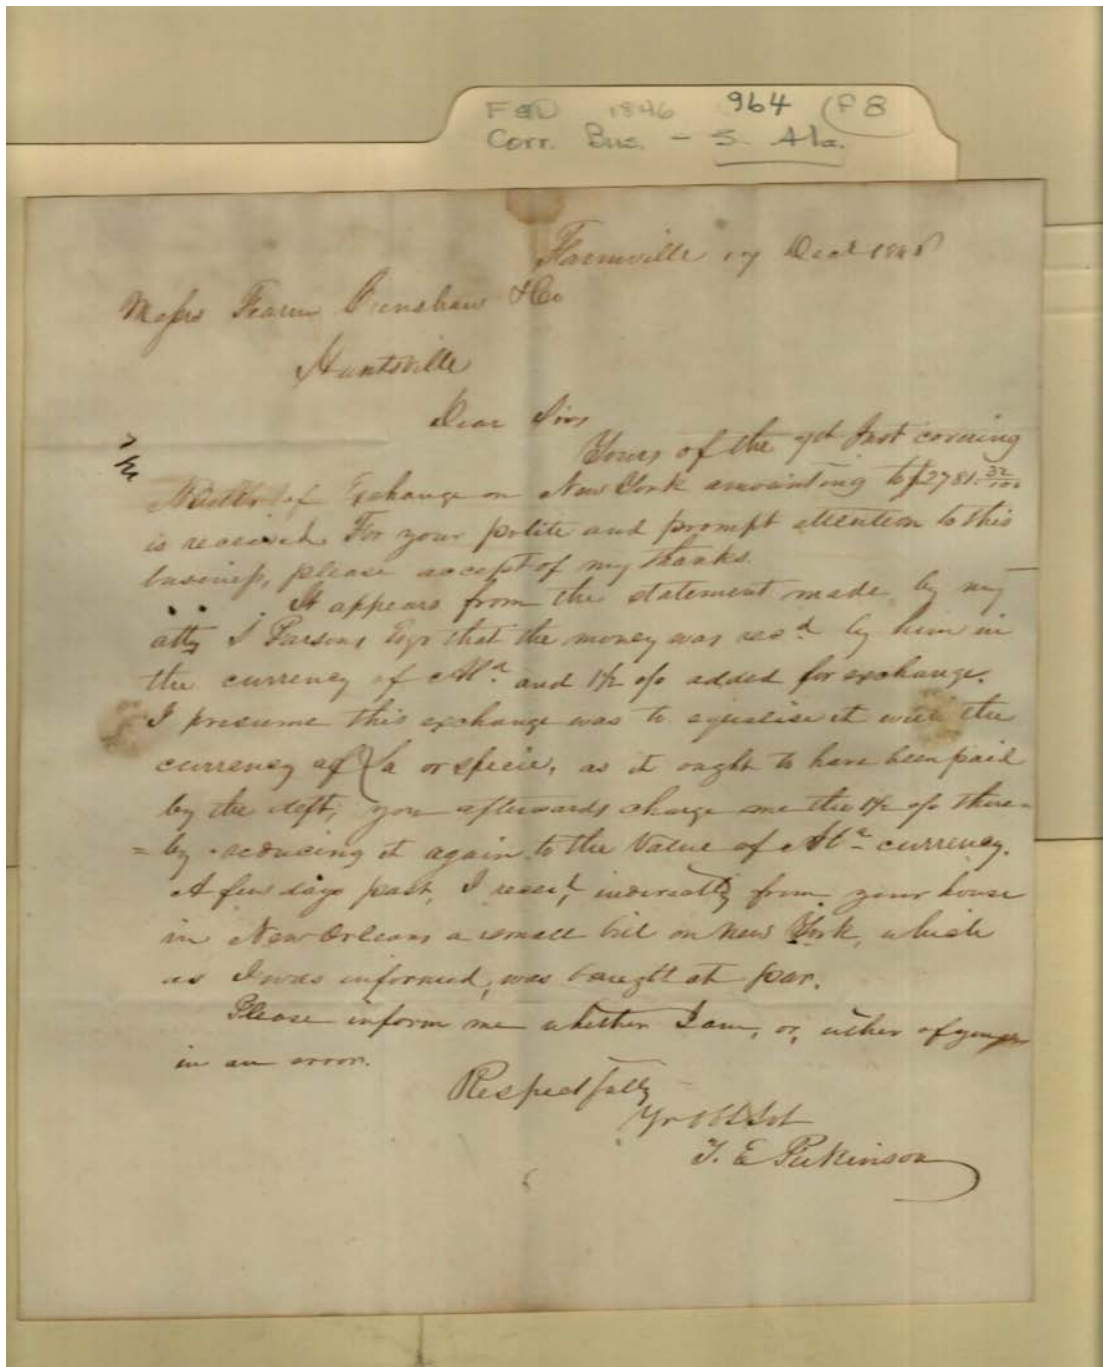 F&D 1846 964 F8
Corr. Bus. - S. Ala.
Farmville 17 Dec
Messrs Fearn Crenshaw & Co
Huntsville
Dear Sirs
Yours of the 7th Inst covering
of Exchange on New York amounting to $2781.32/100
is received. For your polite and prompt attention to this
business, please accept of my thanks.
It appears from the statement made by my
atty S Parsons Esqr that the money was recd by him in
the currency of Ala. and 1½ o/o added for exchange.
I presume this exchange was to equalise it with the
currency of Va or specie, as it ought to have been paid
by the deft; you afterwards charge me the 1½ o/o there-
= by reducing it again to the Value of Ala currency.
A few days past, I recevd, indirectly from your house
in New Orleans a small bill on New York, which
as I was informed, was bought at par.
Please inform me whether I am, or, either of you
in an error.
Respectfully
Yr Obt Svt
T. E Perkinson